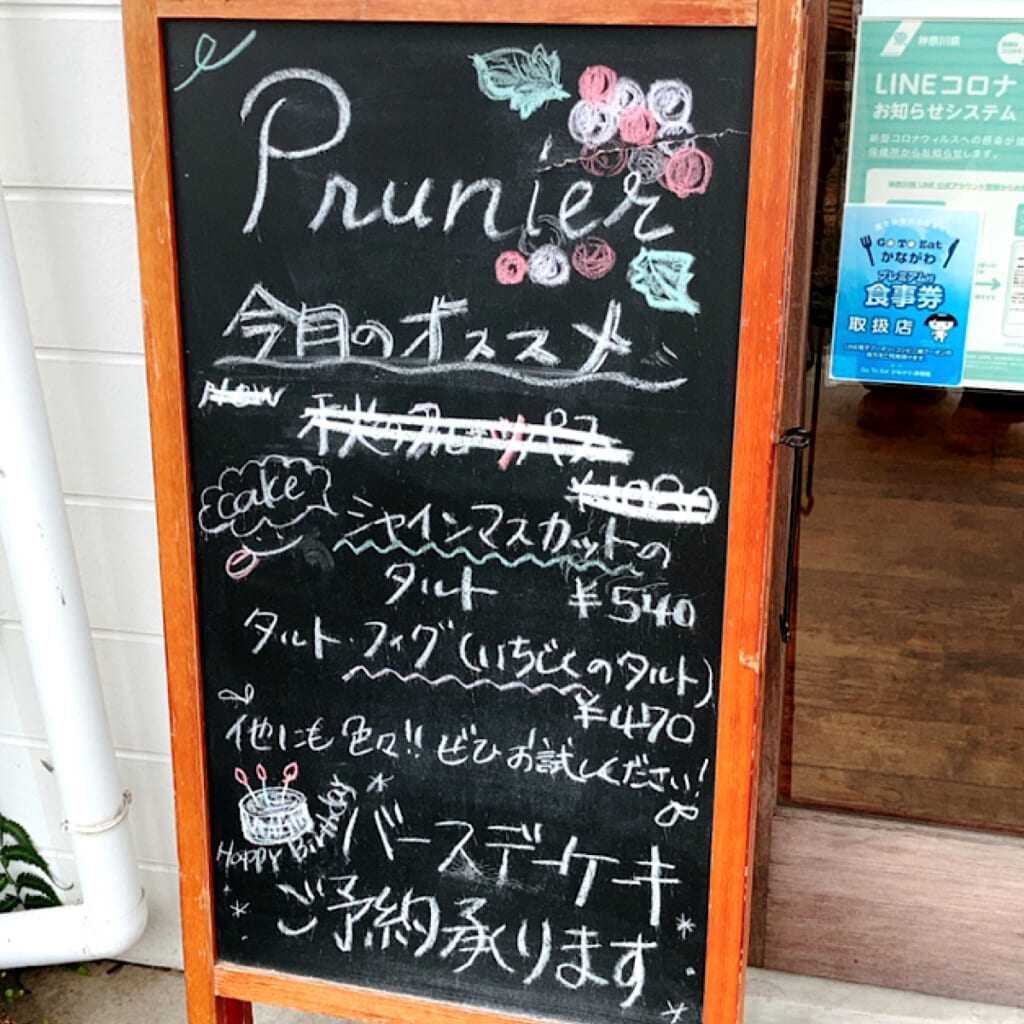 Prunier
今月のオススメ
New
cake
シャインマスカットの
タルト ¥540
タルト・フィグ(いちじくのタルト)
¥470
他にも色々!! ぜひお試しください!
Happy Birthday
バースデーケーキ
ご予約承ります
神奈川県
LINEコロナ
お知らせシステム
新型コロナウィルスへの感染が
保健所からお知らせします。
Go To Eat
かながわ
プレミアム付
食事券
取扱店